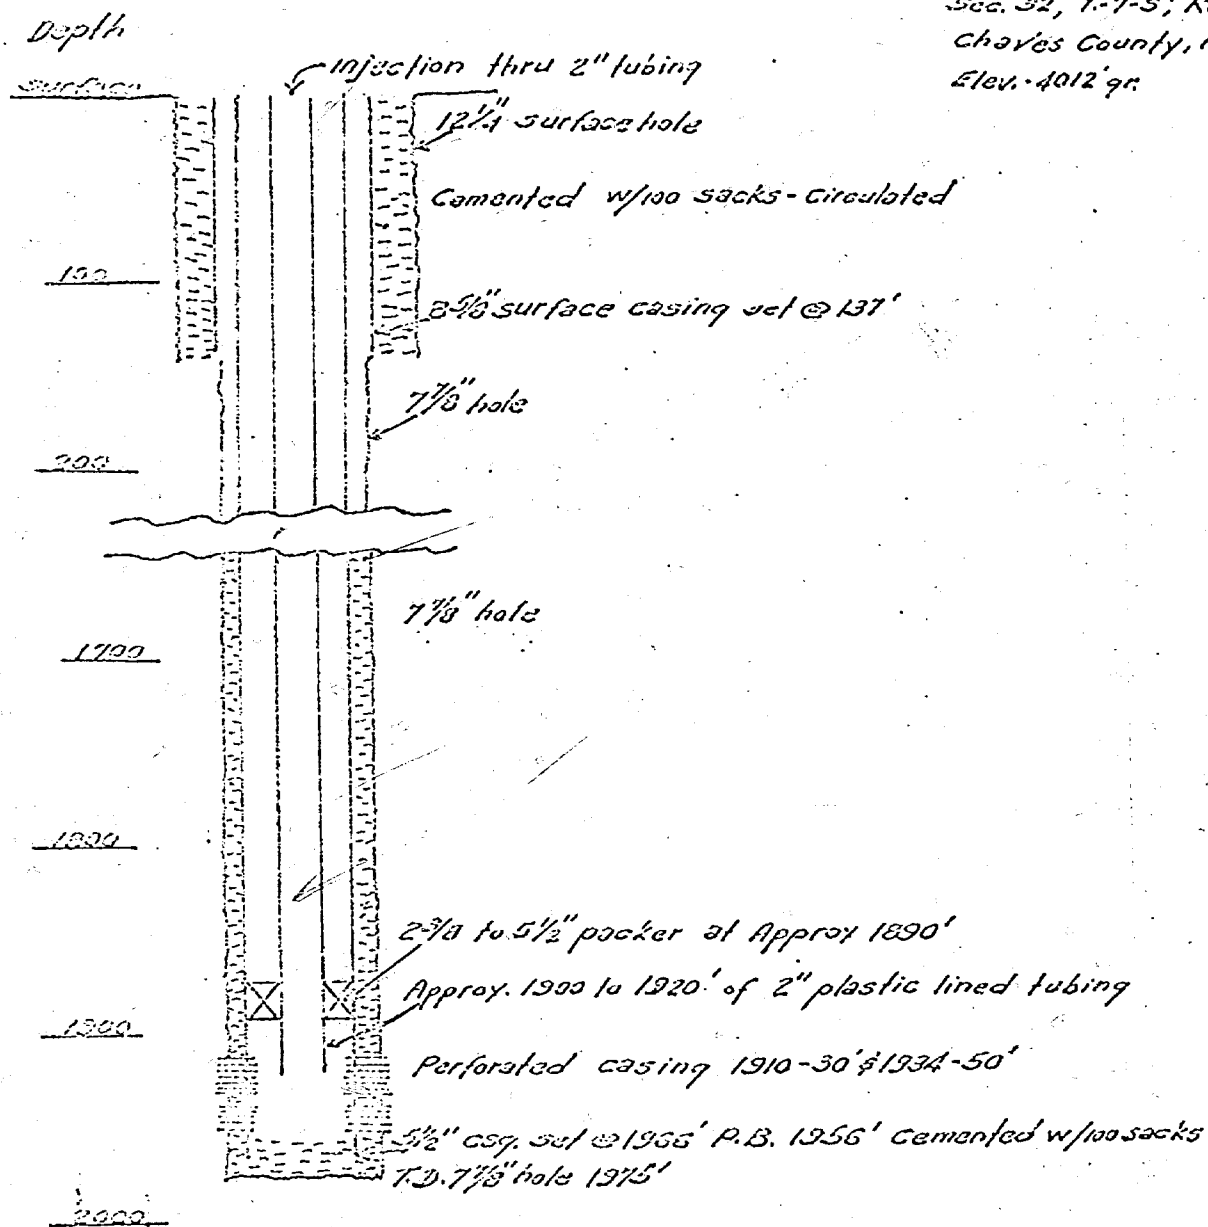 Sec. 32, T.-7-S; R
Chaves County,
Elev.-4012' gr.
Depth
Injection thru 2" tubing
surface
12¼" surface hole
Cemented w/100 sacks-Circulated
100
8-5/8" surface casing set @ 137'
7 7/8" hole
200
7 7/8" hole
1700
1800
2-3/8 to 5½" packer at Approx 1890'
Approx. 1900 to 1920' of 2" plastic lined tubing
1900
Perforated casing 1910-30' & 1934-50'
5½" csg. set @ 1966' P.B. 1956' Cemented w/100 sacks
T.D. 7 7/8" hole 1975'
2000